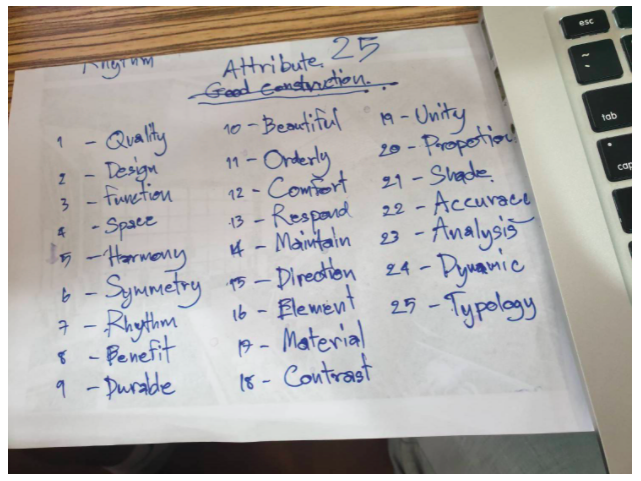 Rhythm
Attribute. 25
Good Construction..
1 - Quality
2 - Design
3 - Function
4 - Space
5 - Harmony
6 - Symmetry
7 - Rhythm
8 - Benefit
9 - Durable
10 - Beautiful
11 - Orderly
12 - Comfort
13 - Respond
14 - Maintain
15 - Direction
16 - Element
17 - Material
18 - Contrast
19 - Unity
20 - Propotion
21 - Shade
22 - Accurace
23 - Analysis
24 - Dynamic
25 - Typology
esc
~
tab
cap